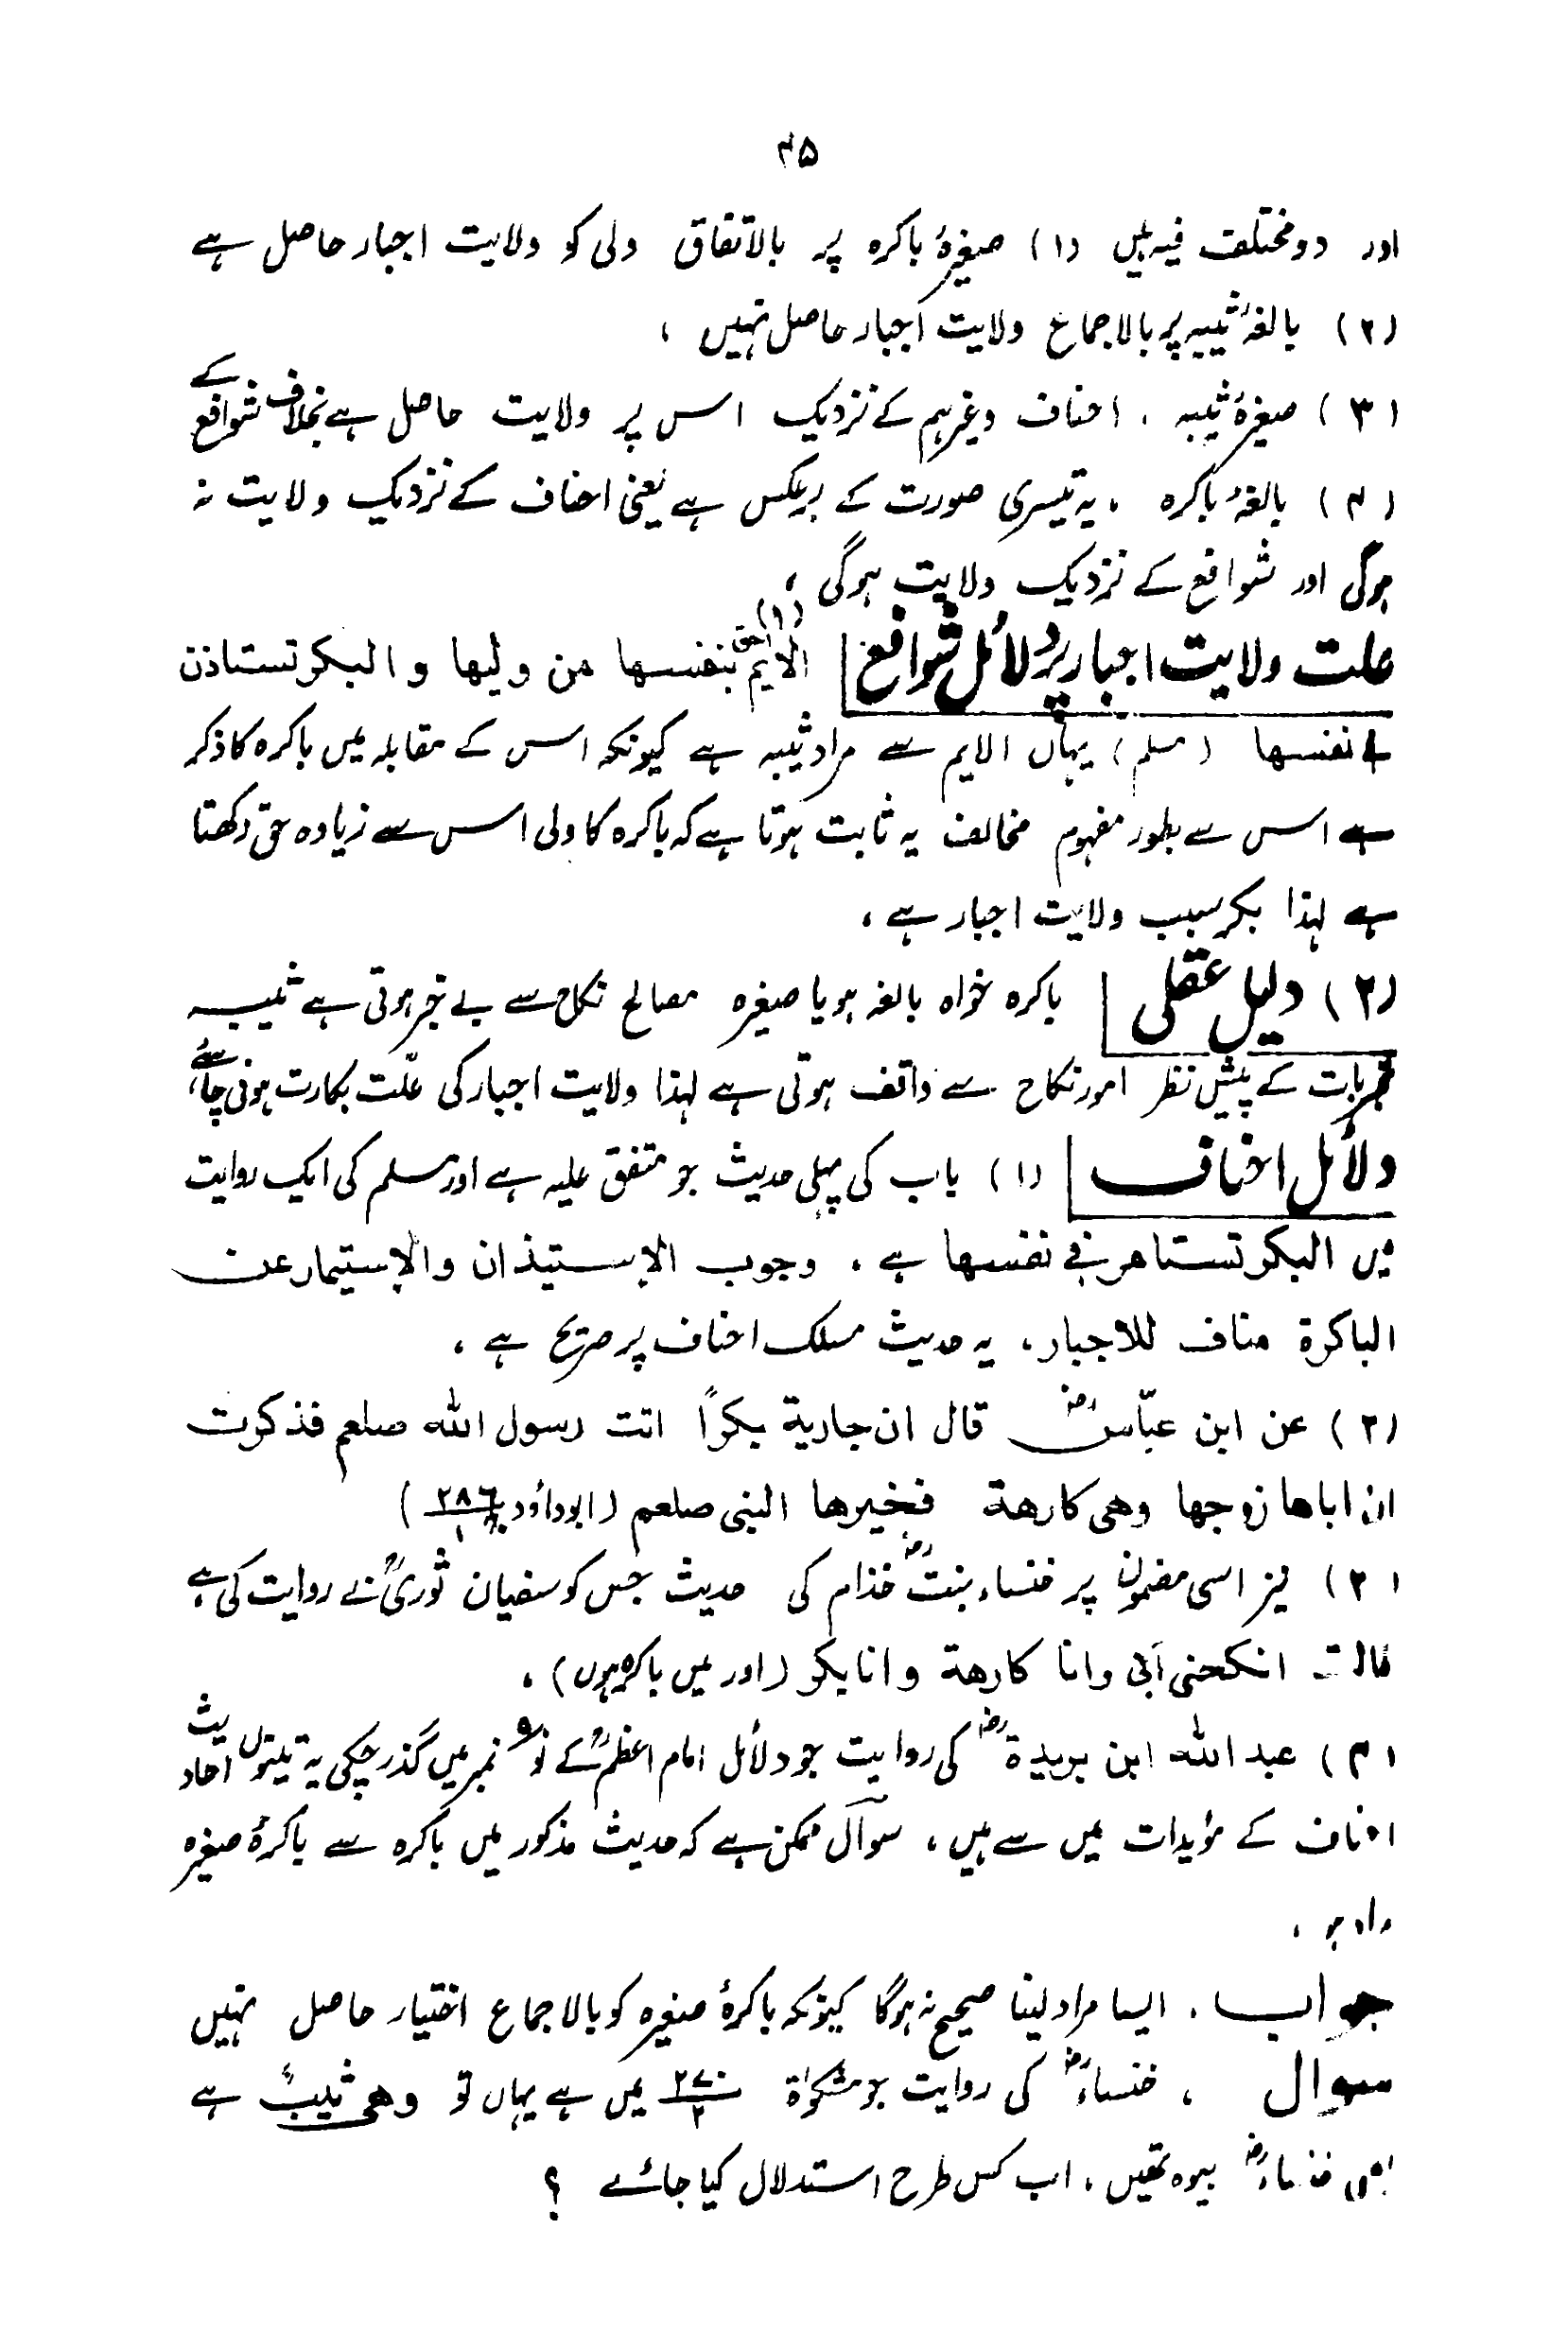 ۴۵
اور دو مختلف فیہ ہیں (۱) صغیرۂ باکرہ پر بالاتفاق ولی کو ولایت اجبار حاصل ہے
(۲) بالغۂ ثیبہ پر بالاجماع ولایت اجبار حاصل نہیں ،
(۳) صغیرۂ ثیبہ ، احناف وغیرہم کے نزدیک اس پر ولایت حاصل ہے بخلاف شوافع کے
(۴) بالغۂ باکرہ ، یہ تیسری صورت کے برعکس ہے یعنی احناف کے نزدیک ولایت نہ
ہوگی اور شوافع کے نزدیک ولایت ہوگی ،
علت ولایت اجبار پر دلائل شوافع (۱) الایم احق بنفسها من ولیها و البکر تستاذن
فی نفسها (مسلم) یہاں الایم سے مراد ثیبہ ہے کیونکہ اس کے مقابلہ میں باکرہ کا ذکر
ہے اس سے بطور مفہوم مخالف یہ ثابت ہوتا ہے کہ باکرہ کا ولی اس سے زیادہ حق رکھتا
ہے لہذا بکر سبب ولایت اجبار ہے ،
(۲) دلیل عقلی باکرہ خواہ بالغہ ہو یا صغیرہ مصالح نکاح سے بے خبر ہوتی ہے ثیبہ
تجربات کے پیش نظر امور نکاح سے واقف ہوتی ہے لہذا ولایت اجبار کی علّت بکارت ہونی چاہئے ،
دلائل احناف (۱) باب کی پہلی حدیث جو متفق علیہ ہے اور مسلم کی ایک روایت
میں البکر تستامر فی نفسها ہے ، وجوب الاستیذان والاستیمار عن
الباکرة مناف للاجبار ، یہ حدیث مسلک احناف پر صریح ہے ،
(۲) عن ابن عبّاسؓ قال ان جاریة بکرًا اتت رسول الله صلعم فذکرت
ان اباها زوجها وهی کارهة فخیرها النبی صلعم (ابوداؤد ۲۸۶/۱)
(۳) نیز اسی مضمون پر خنساء بنتؓ خذام کی حدیث جس کو سفیان ثوریؒ نے روایت کی ہے
قالت انکحنی ابی وانا کارهة وانا بکر (اور میں باکرہ ہوں) ،
(۴) عبد الله ابن بریدةؓ کی روایت جو دلائل امام اعظمؒ کے نمبر میں گذر چکی یہ تینوں احادیث
احناف کے مؤیدات میں سے ہیں ، سوال ممکن ہے کہ حدیث مذکور میں باکرہ سے باکرۂ صغیرہ
مراد ہو ،
جواب ، ایسا مراد لینا صحیح نہ ہوگا کیونکہ باکرۂ صغیرہ کو بالاجماع اختیار حاصل نہیں
سوال ، خنساءؓ کی روایت جو مشکوٰۃ ۲۷۰/۲ میں ہے یہاں تو وهی ثیبٌ ہے
یعنی خنساءؓ بیوہ تھیں ، اب کس طرح استدلال کیا جائے ؟